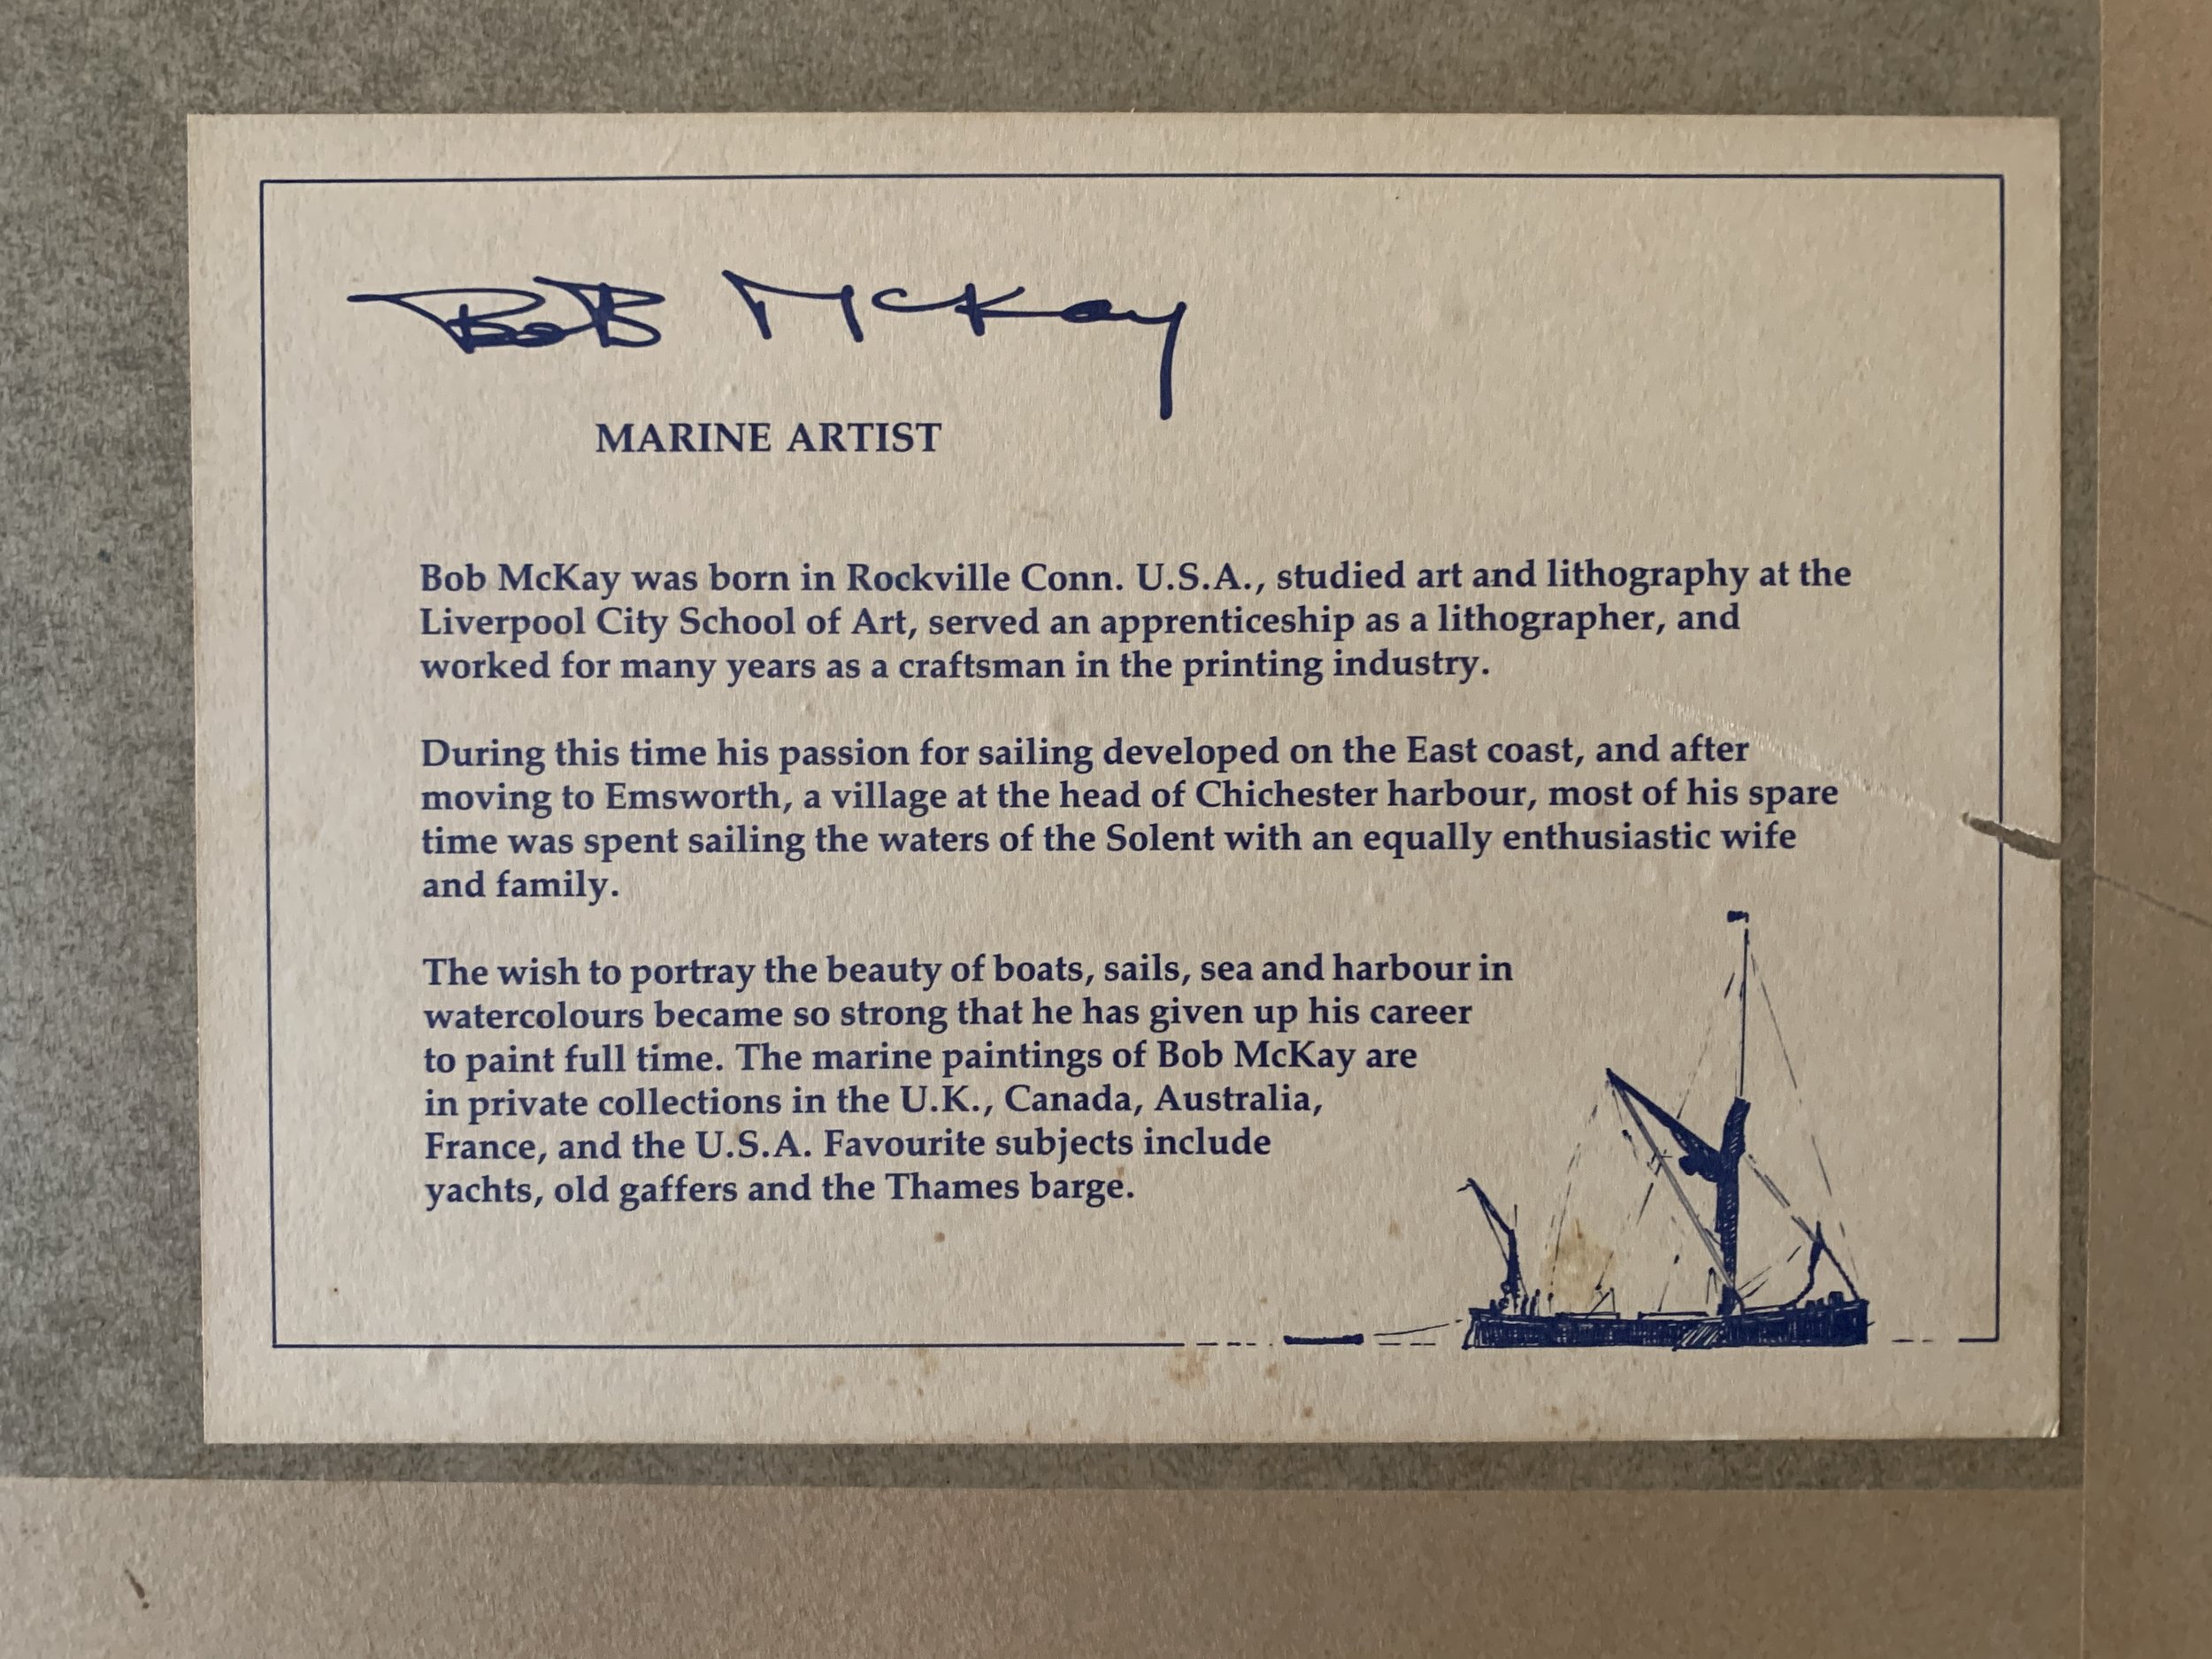 Bob McKay
MARINE ARTIST
Bob McKay was born in Rockville Conn. U.S.A., studied art and lithography at the
Liverpool City School of Art, served an apprenticeship as a lithographer, and
worked for many years as a craftsman in the printing industry.
During this time his passion for sailing developed on the East coast, and after
moving to Emsworth, a village at the head of Chichester harbour, most of his spare
time was spent sailing the waters of the Solent with an equally enthusiastic wife
and family.
The wish to portray the beauty of boats, sails, sea and harbour in
watercolours became so strong that he has given up his career
to paint full time. The marine paintings of Bob McKay are
in private collections in the U.K., Canada, Australia,
France, and the U.S.A. Favourite subjects include
yachts, old gaffers and the Thames barge.